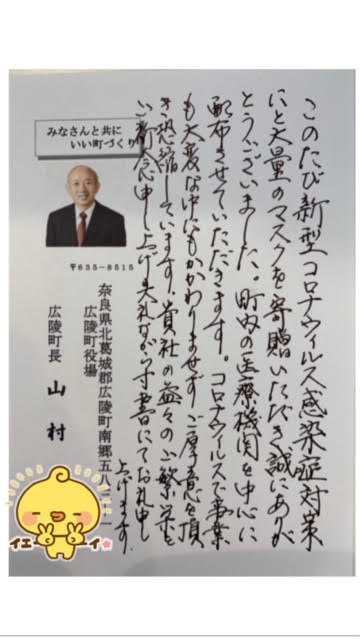 このたび新型コロナウィルス感染症対策
にと大量のマスクを寄贈いただき誠にありが
とうございました。町内の医療機関を中心に
配布させていただきます。コロナウイルスで事業
も大変な中にもかかわりませず、ご厚意を頂
き恐縮しています。貴社の益々のご繁栄を
ご祈念申し上げ失礼ながら寸書にてお礼申し
上げます。
みなさんと共に
いい町づくり
〒635-8515
奈良県北葛城郡広陵町南郷五八三-一
広陵町役場
広陵町長 山村
イエーイ